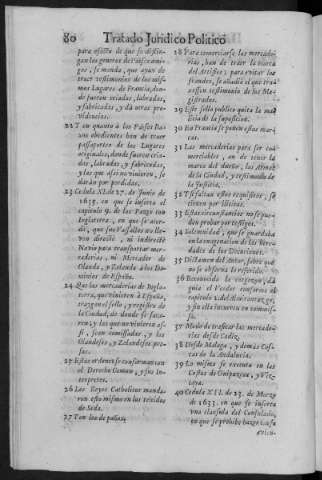 80 Tratado Juridico Politico
para efecto de que se distin-
gan los generos de Paises ami-
gos, se manda, que ayan de
traer testimonios de los mis-
mos Lugares de Francia, don-
de fueron criados, labrados,
y fabricados, y dà otras pro-
videncias.
22 Y en quanto à los Paises Ba-
xos obedientes han de traer
passaportes de los Lugares
originales, donde fueron cria-
dos, labrados, y fabricados,
y los que assi no vinieren, se
daràn por perdidos.
23 Cedula XI. de 27. de Junio de
1635. en que se inserta el
capitulo 9. de las Pazes con
Inglaterra, en que se assen-
diò, que sus Vassallos no lle-
ven directè, ni indirectè
Navio para transportar mer-
caderias, ni Mercader de
Olanda, y Zelanda à los Do-
minios de España.
24 Que las mercaderias de Ingla-
terra, que vinieren à España,
traygan el sello, y registro de
la Ciudad, de donde se saca-
ren; y las que no vinieren as-
si, sean comissadas, y los
Olandeses, y Zelandeses pre-
sos.
25 Estas ordenes se conforman con
el Derecho Comun, y sus In-
terpretes.
26 Los Reyes Catholicos manda-
ron esto mismo en los texidos
de Seda.
27 Y en los de paños.
28 Para comerciarse las mercade-
rias, han de traer la marca
del Artifice; y para evitar los
fraudes, se añadiò el que tra-
xessen testimonio de los Ma-
gistrados.
29 Este sello publico quita la ma-
licia de la suposicion.
30 En Francia se ponen estas mar-
cas.
31 Las mercaderias para ser co-
merciables, han de tener la
marca del dueño, las Armas
de la Ciudad, y testimonio de
la Justicia.
32 Y si faltan estos requisitos, se
tienen por ilicitas.
33 Estas circunstancias no se pue-
den probar por testigos.
34 Solemnidad, que se guardaba
en la enagenacion de las here-
dades de los Decuriones.
35 Dictamen del Autor, sobre que
no se observa lo referido.
37 Modo de trasecar las mercade-
rias desde Cadiz.
38 Desde Malaga, y demàs Cos-
tas de la Andalucia.
39 Lo mismo se executa en las
Costas de Guipuzcoa, y Viz-
caya.
40 Cedula XII. de 23. de Março
de 1633. en que se inserta
una clausula del Consulado,
en que se prohibe hazer Casa